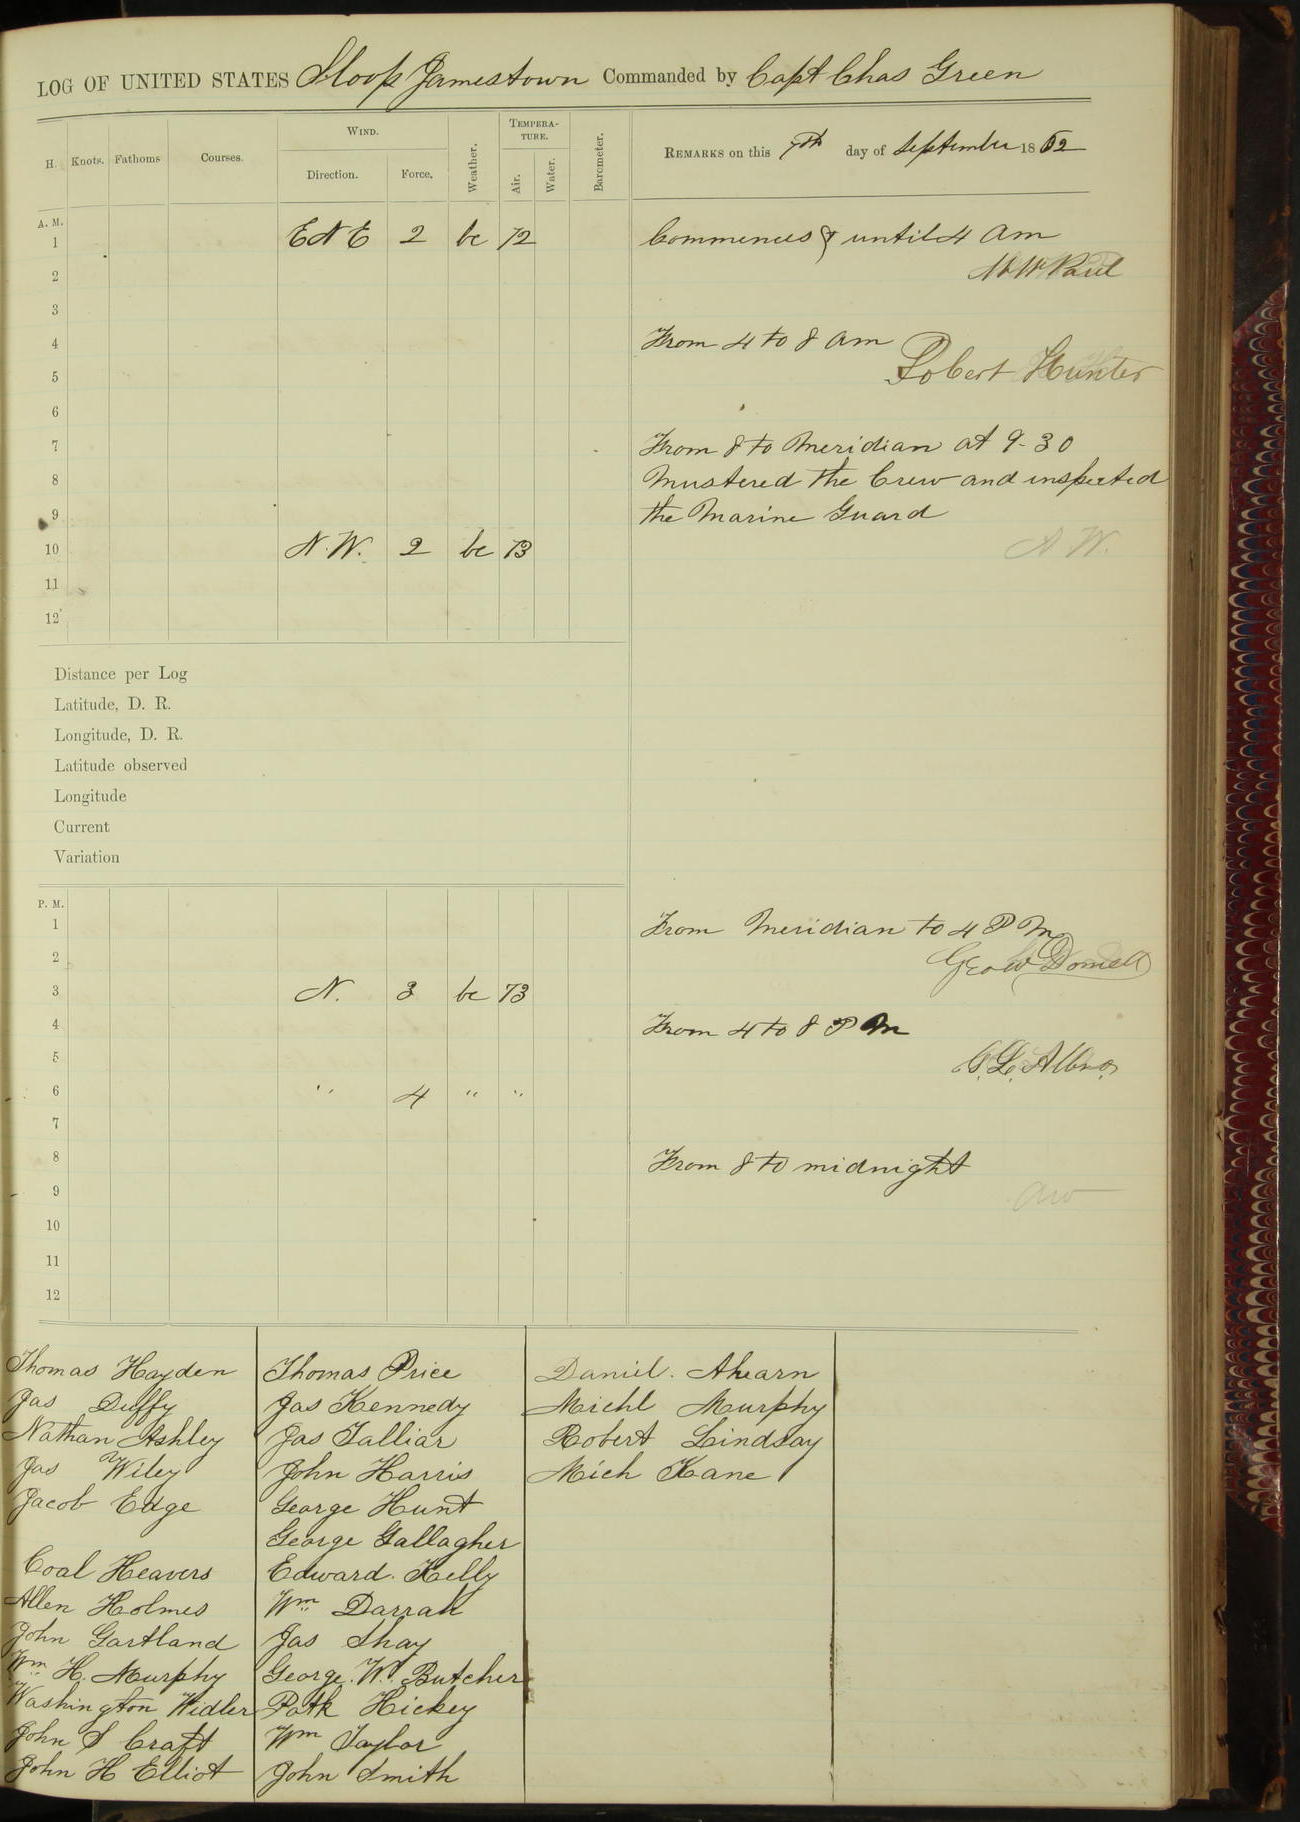 LOG OF UNITED STATES Sloop Jamestown Commanded by Capt Chas Green
H. Knots. Fathoms Courses. WIND. Direction. Force. Weather. TEMPERATURE. Air. Water. Barometer.
REMARKS on this 7th day of September 1862
A. M.
1 E N E 2 bc 72 Commences & until 4 Am
2
3
4 From 4 to 8 am
5 Robert Hunter
6
7 From 8 to Meridian at 9-30
8 Mustered the Crew and inspected
9 the Marine Guard
10 N. W. 2 bc 73 A W.
11
12
Distance per Log
Latitude, D. R.
Longitude, D. R.
Latitude observed
Longitude
Current
Variation
P. M.
1 From Meridian to 4 P M
2
3 N. 3 bc 73
4 From 4 to 8 P M
5
6 " 4 " "
7
8 From 8 to midnight
9 AW
10
11
12
Thomas Hayden
Jas Duffy
Nathan Ashley
Jas Wiley
Jacob Edge
Coal Heavers
Allen Holmes
John Gartland
Wm H. Murphy
Washington Widler
John S Craft
John H Elliot
Thomas Price
Jas Kennedy
Jas Talliar
John Harris
George Hunt
George Gallagher
Edward Kelly
Wm Darrah
Jas Shay
George. W. Butcher
Patk Hickey
Wm Taylor
John Smith
Daniel. Ahearn
Michl Murphy
Robert Lindsay
Mich Kane